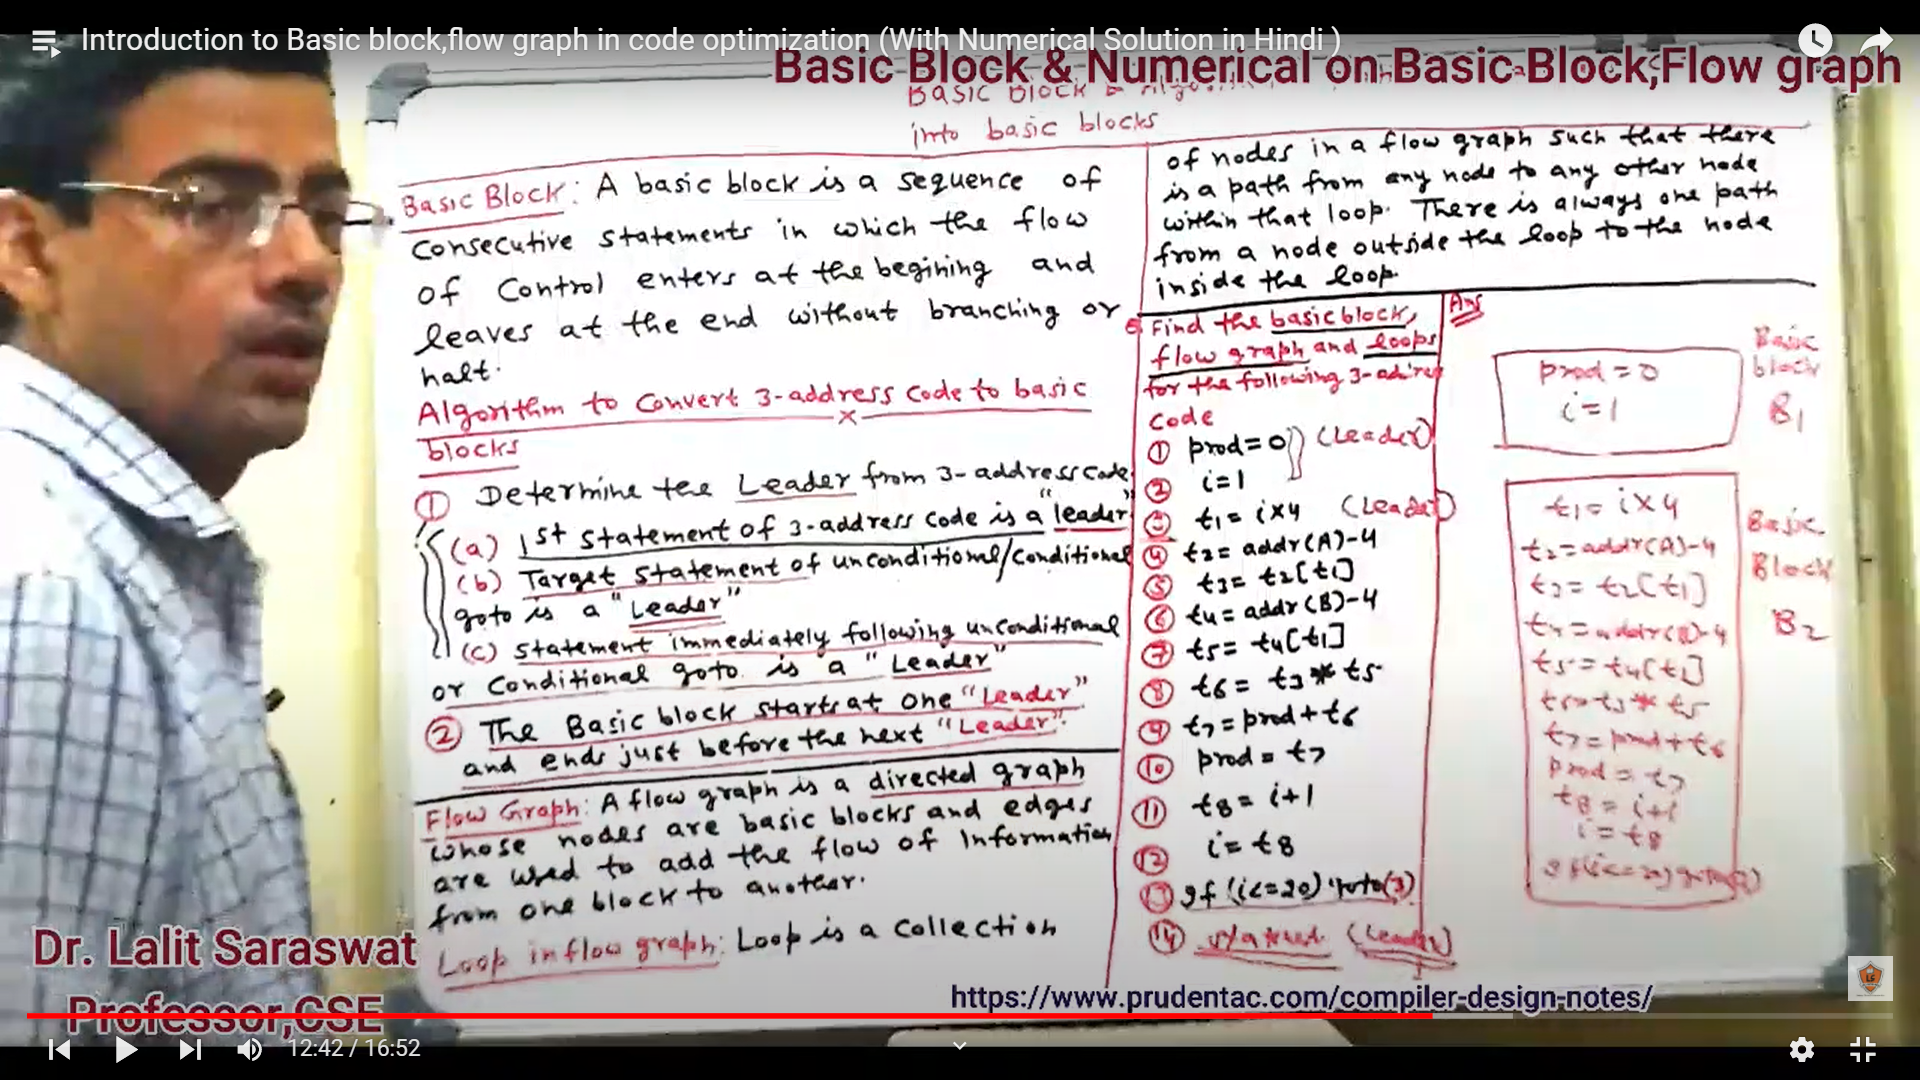 Introduction to Basic block,flow graph in code optimization (With Numerical Solution in Hindi )
Basic Block & Numerical on Basic Block,Flow graph
Basic Block &
into basic blocks
Basic Block: A basic block is a sequence of
consecutive statements in which the flow
of control enters at the begining and
leaves at the end without branching or
halt.
Algorithm to convert 3-address code to basic
blocks
① Determine the Leader from 3-address code
(a) 1st statement of 3-address code is a "leader"
(b) Target statement of unconditional/conditional
goto is a "Leader"
(c) statement immediately following unconditional
or conditional goto is a "Leader"
② The Basic block starts at one "Leader"
and ends just before the next "Leader".
Flow Graph: A flow graph is a directed graph
whose nodes are basic blocks and edges
are used to add the flow of Information
from one block to another.
Loop in flow graph: Loop is a collection
of nodes in a flow graph such that there
is a path from any node to any other node
within that loop. There is always one path
from a node outside the loop to the node
inside the loop.
Find the basic block,
flow graph and loops
for the following 3-addres
code
① prod=0 (Leader)
② i=1
③ t1= i×4 (Leader)
④ t2= addr(A)-4
⑤ t3= t2[t1]
⑥ t4= addr(B)-4
⑦ t5= t4[t1]
⑧ t6= t3*t5
⑨ t7=prod+t6
⑩ prod=t7
⑪ t8=i+1
⑫ i=t8
⑬ If (i<=20) goto(3)
⑭ (Leader)
Ans
prod=0
i=1
Basic
block
B1
t1= i×4
t2=addr(A)-4
t3= t2[t1]
t4=addr(B)-4
t5=t4[t1]
t6=t3*t5
t7=prod+t6
prod=t7
t8=i+1
i=t8
If(i<=20) goto(3)
Basic
Block
B2
Dr. Lalit Saraswat
Professor,CSE
https://www.prudentac.com/compiler-design-notes/
12:42 / 16:52